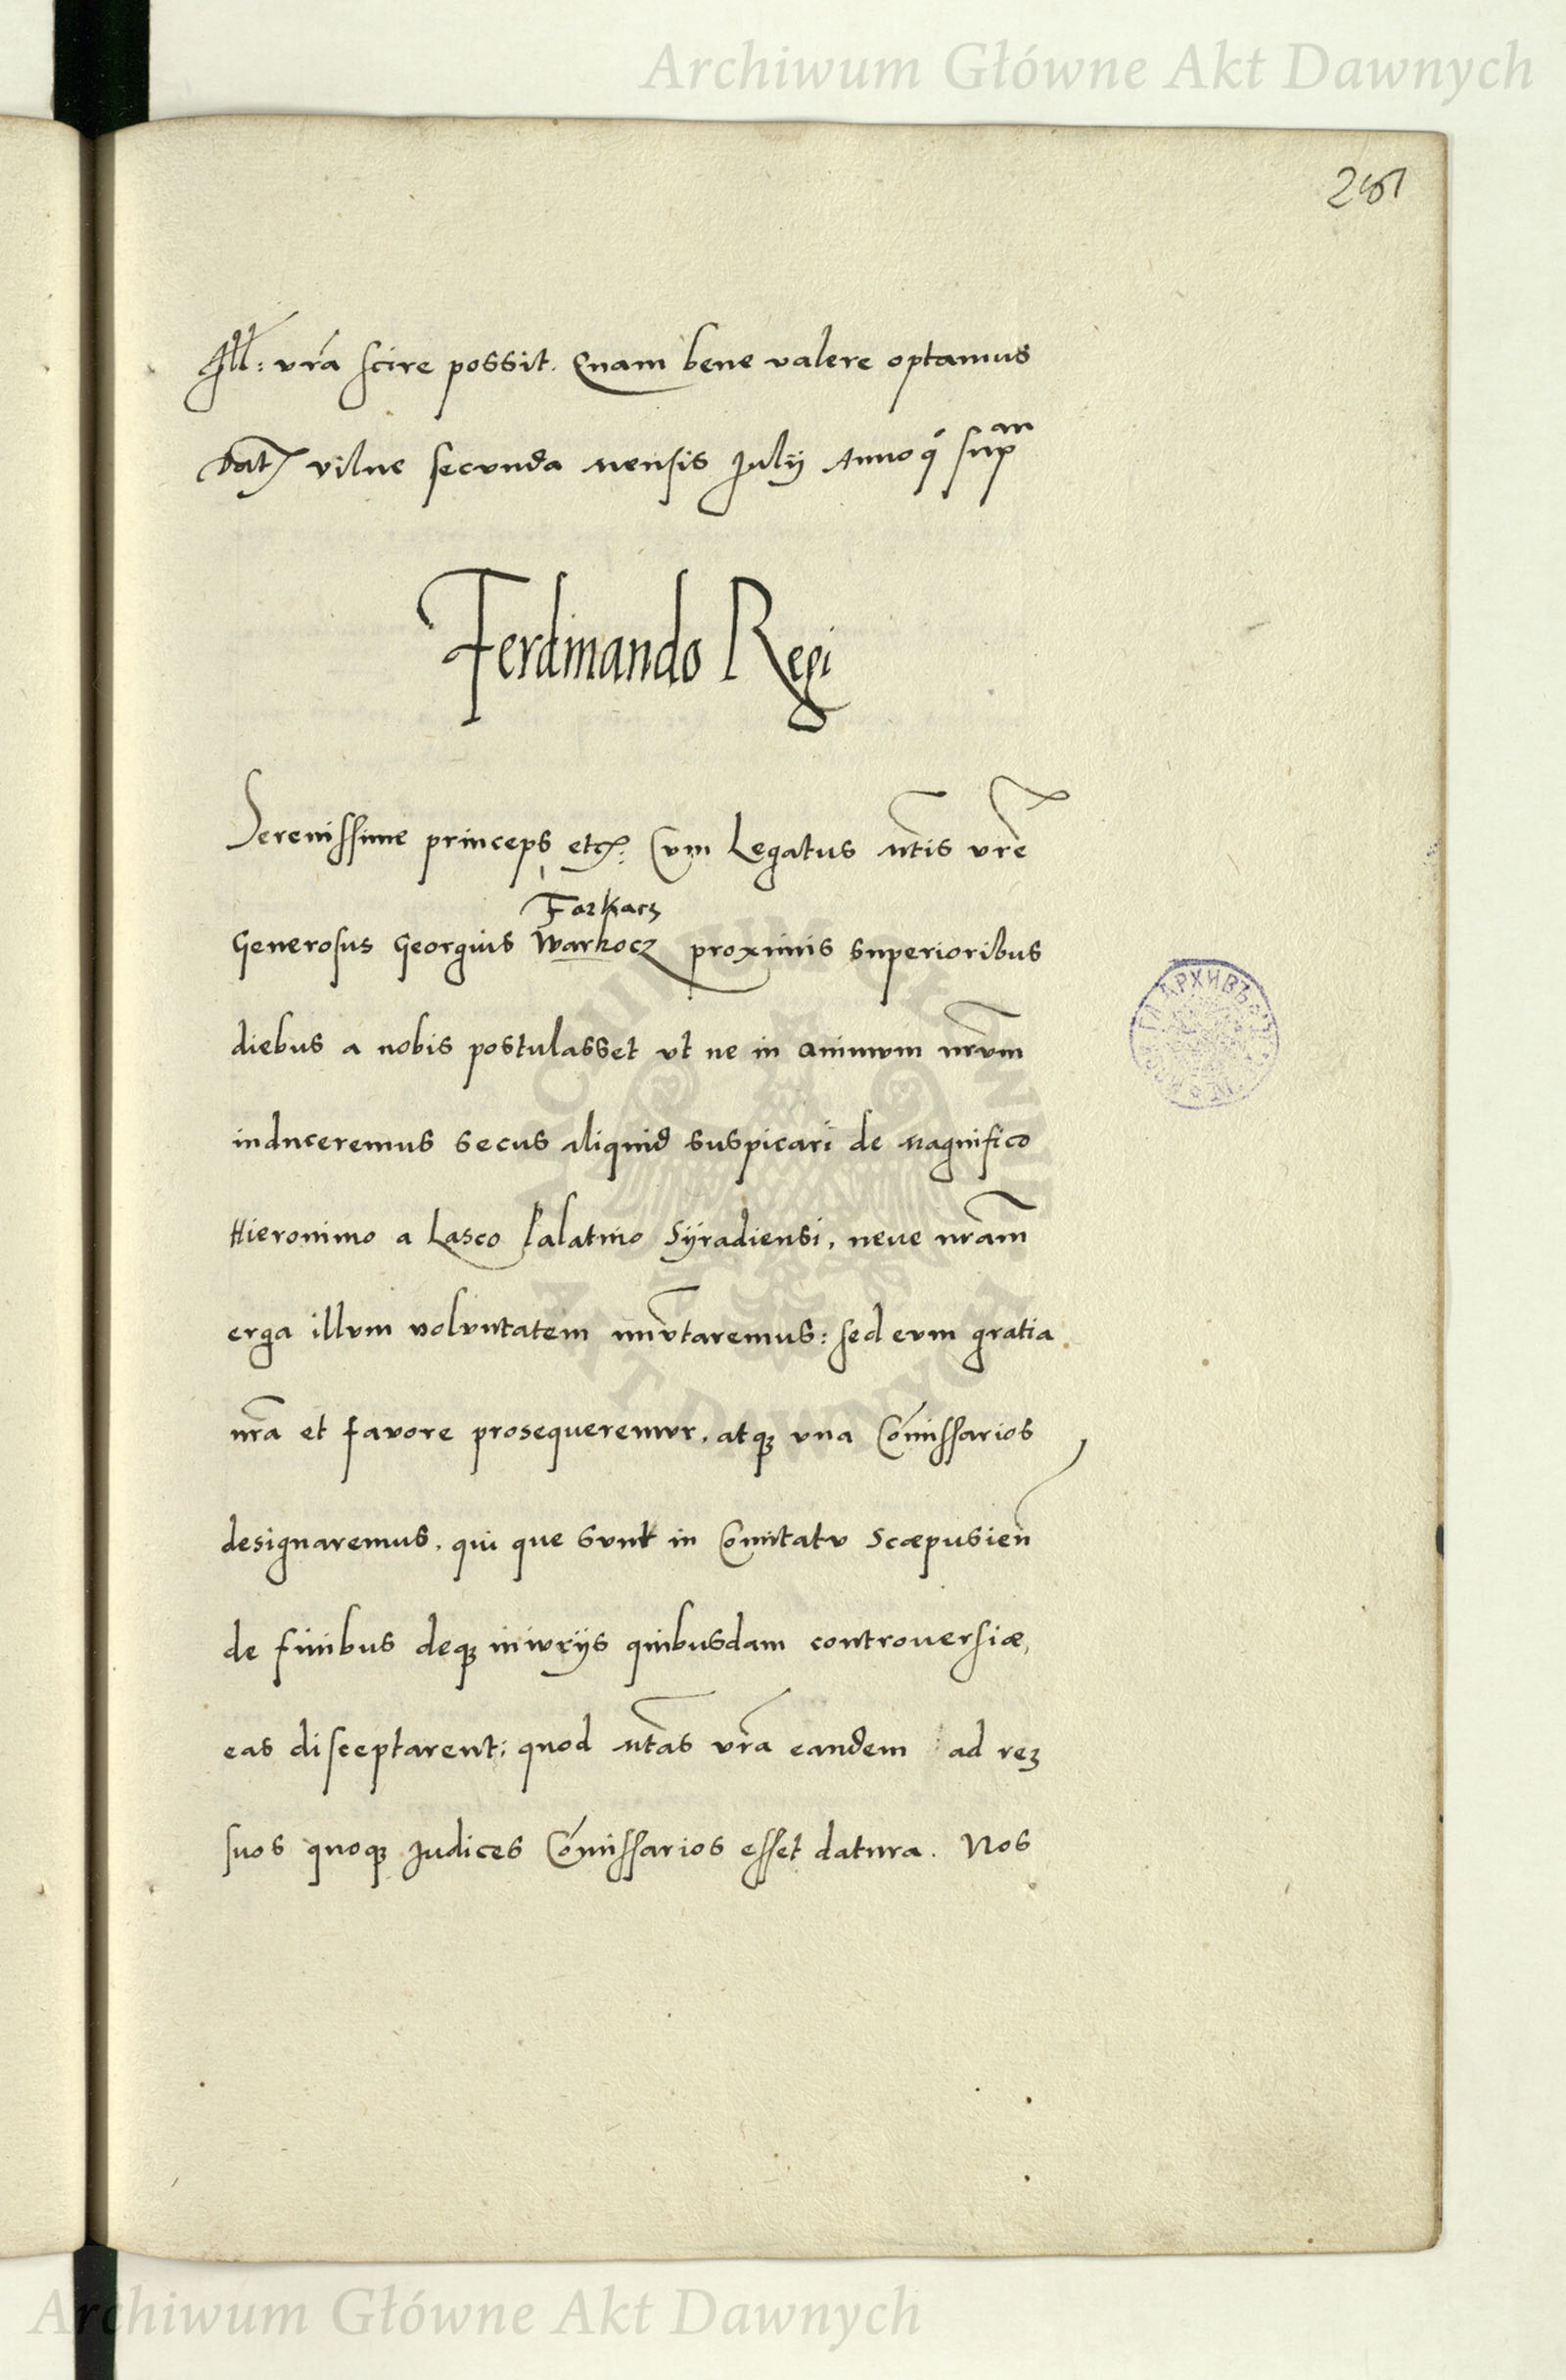 Archiwum Główne Akt Dawnych
Ill: vrā scire possit. Quam bene valere optamus
Dat vilne secunda mensis Julij Anno q̄ sup an
Ferdinando Regi
Serenissime princeps etc: Cum Legatus Mtis vrē
Farkacz
Generosus Georgius Warkocz proximis superioribus
diebus a nobis postulasset vt ne in animum nrūm
induceremus secus aliquid suspicari de Magnifico
Hieronimo a Lasco Palatino Syradiensi, neue nrām
erga illum voluntatem immutaremus: sed eum gratia
nrā et favore prosequeremur, atq; vna Cōmissarios
designaremus, qui que sunt in Comitatu Scæpusień
de finibus deq; iniurijs quibusdam controversiæ,
eas disceptarent: quod Mtas vrā eandem ad rem
suos quoq; Judices Cōmissarios esset datura. Nos
ARCHIWUM GŁÓWNE AKT DAWNYCH
Archiwum Główne Akt Dawnych